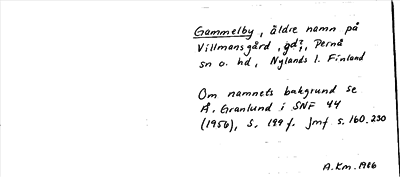 Gammelby, äldre namn på
Villmansgård, gd?, Pernå
sn o. hd, Nylands l. Finland
Om namnets bakgrund se
Å. Granlund i SNF 44
(1956), s. 199 f. Jmf s. 160. 230
A.Km. 1986